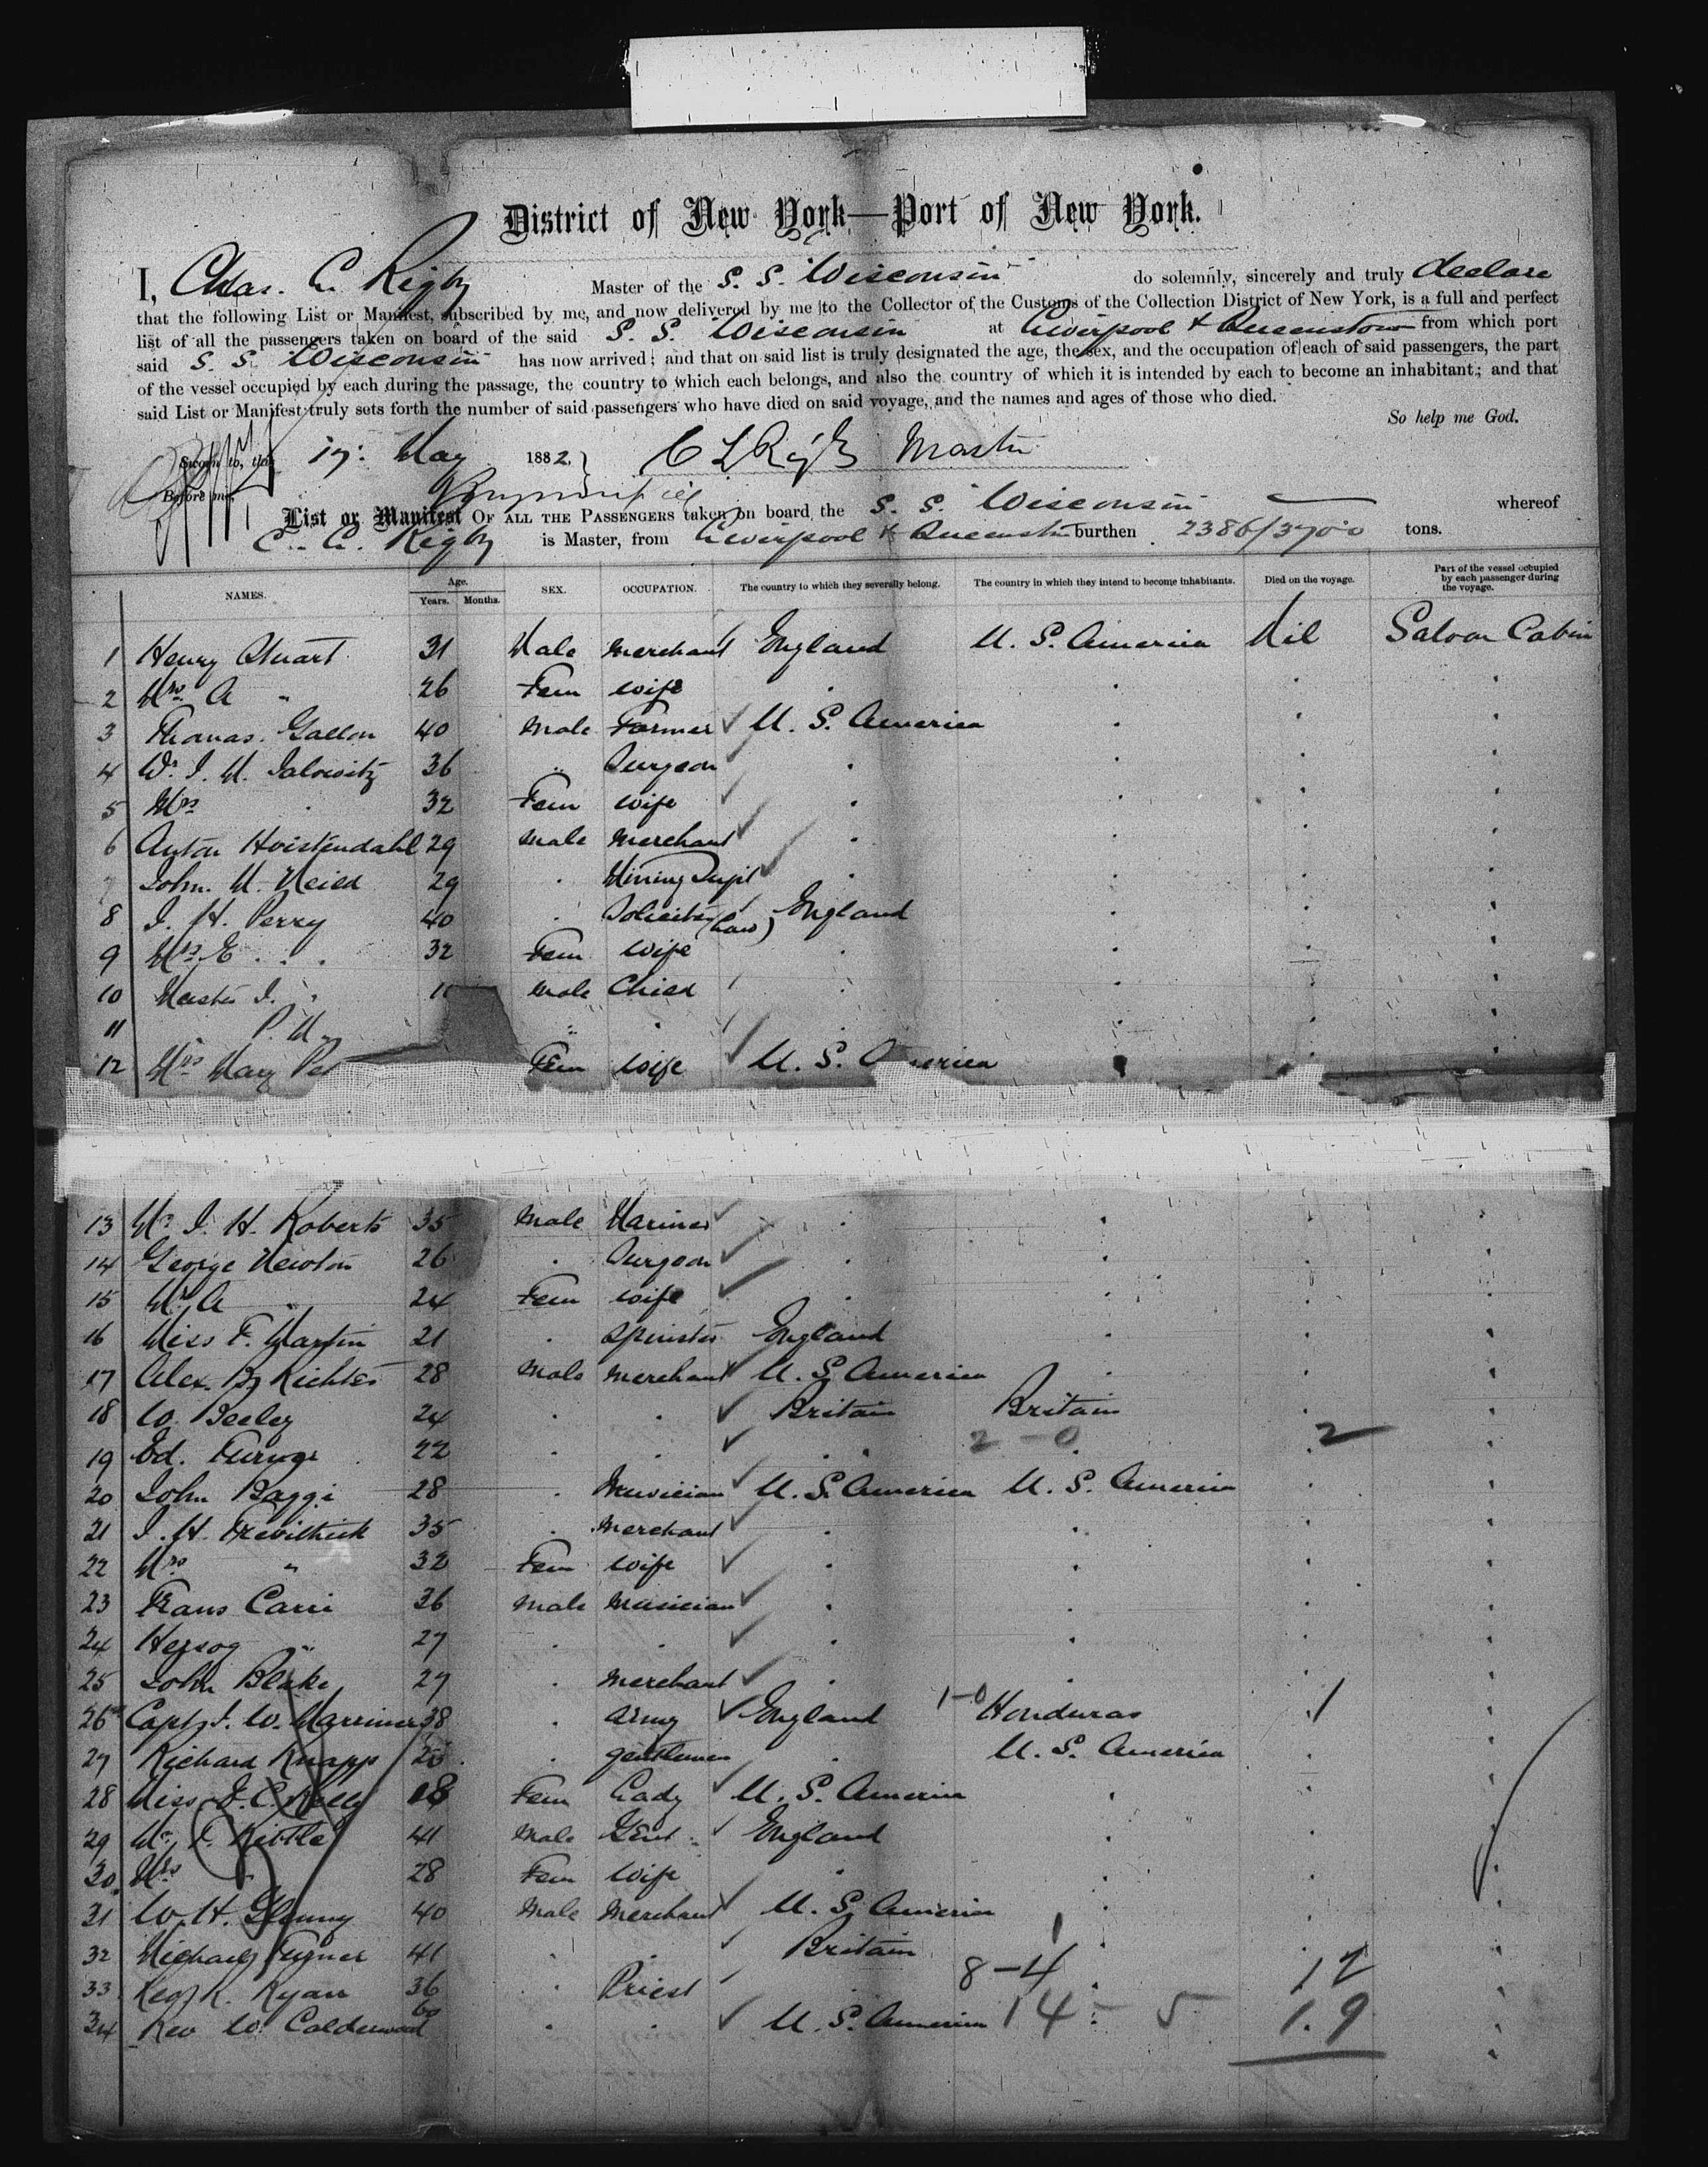 District of New York—Port of New York.
I, Chas. C. Rigby Master of the S. S. Wisconsin do solemnly, sincerely and truly declare
that the following List or Manifest, subscribed by me, and now delivered by me to the Collector of the Customs of the Collection District of New York, is a full and perfect
list of all the passengers taken on board of the said S. S. Wisconsin at Liverpool & Queenstown from which port
said S. S. Wisconsin has now arrived; and that on said list is truly designated the age, the sex, and the occupation of each of said passengers, the part
of the vessel occupied by each during the passage, the country to which each belongs, and also the country of which it is intended by each to become an inhabitant; and that
said List or Manifest truly sets forth the number of said passengers who have died on said voyage, and the names and ages of those who died.
So help me God.
Sworn to, this 17 May 1882, Master
Before me,
List or Manifest OF ALL THE PASSENGERS taken on board the S. S. Wisconsin whereof
Rigby is Master, from Liverpool & burthen 2386/3700 tons.
NAMES. Age. Years. Months. SEX. OCCUPATION. The country to which they severally belong. The country in which they intend to become inhabitants. Died on the voyage. Part of the vessel occupied by each passenger during the voyage.
1 Henry Stuart 31 Male Merchant England U. S. America Nil Saloon Cabin
2 Mrs A " 26 Fem wife
3 Thomas Gallon 40 Male Farmer U. S. America
4 36 " Surgeon
5 Mrs 32 Fem wife
6 Anton Hvistendahl 29 Male Merchant
7 John M. 29 Mining Supt
8 J. H. Perry 40 Solicitor (Law) England
9 Mrs E 32 Fem wife
10 Master J. Male Child
11 P. M. "
12 Mrs Mary Fem wife U. S. America
13 Mr J. H. Roberts 35 Male Mariner
14 George Newton 26 Surgeon
15 Mrs A " 24 Fem wife
16 Miss F. Martin 21 Spinster England
17 Alex. Richter 28 Male Merchant U. S. America
18 W. Beeley 24 Britain Britain
19 Ed. 22 2-0 2
20 John Baggi 28 Musician U. S. America U. S. America
21 J. H. Trevithick 35 Merchant
22 Mrs " 32 Fem wife
23 Frans Carri 26 Male Musician
24 " 27
25 John Blake 27 Merchant
26 Capt J. W. Marriner 38 Army England 1-0 Honduras 1
27 Richard Knapp Gentleman U. S. America
28 Miss J. C. Kelly 18 Fem Lady U. S. America
29 Mr J. Kittle 41 Male Gent England
30 Mrs " 28 Fem wife
31 W. H. Glenny 40 Male Merchant U. S. America
32 Michael 41 Britain 1
33 Rev K. Ryan 36 Priest 8-4 12
34 Rev W. Calderwood 60 U. S. America 14-5 19